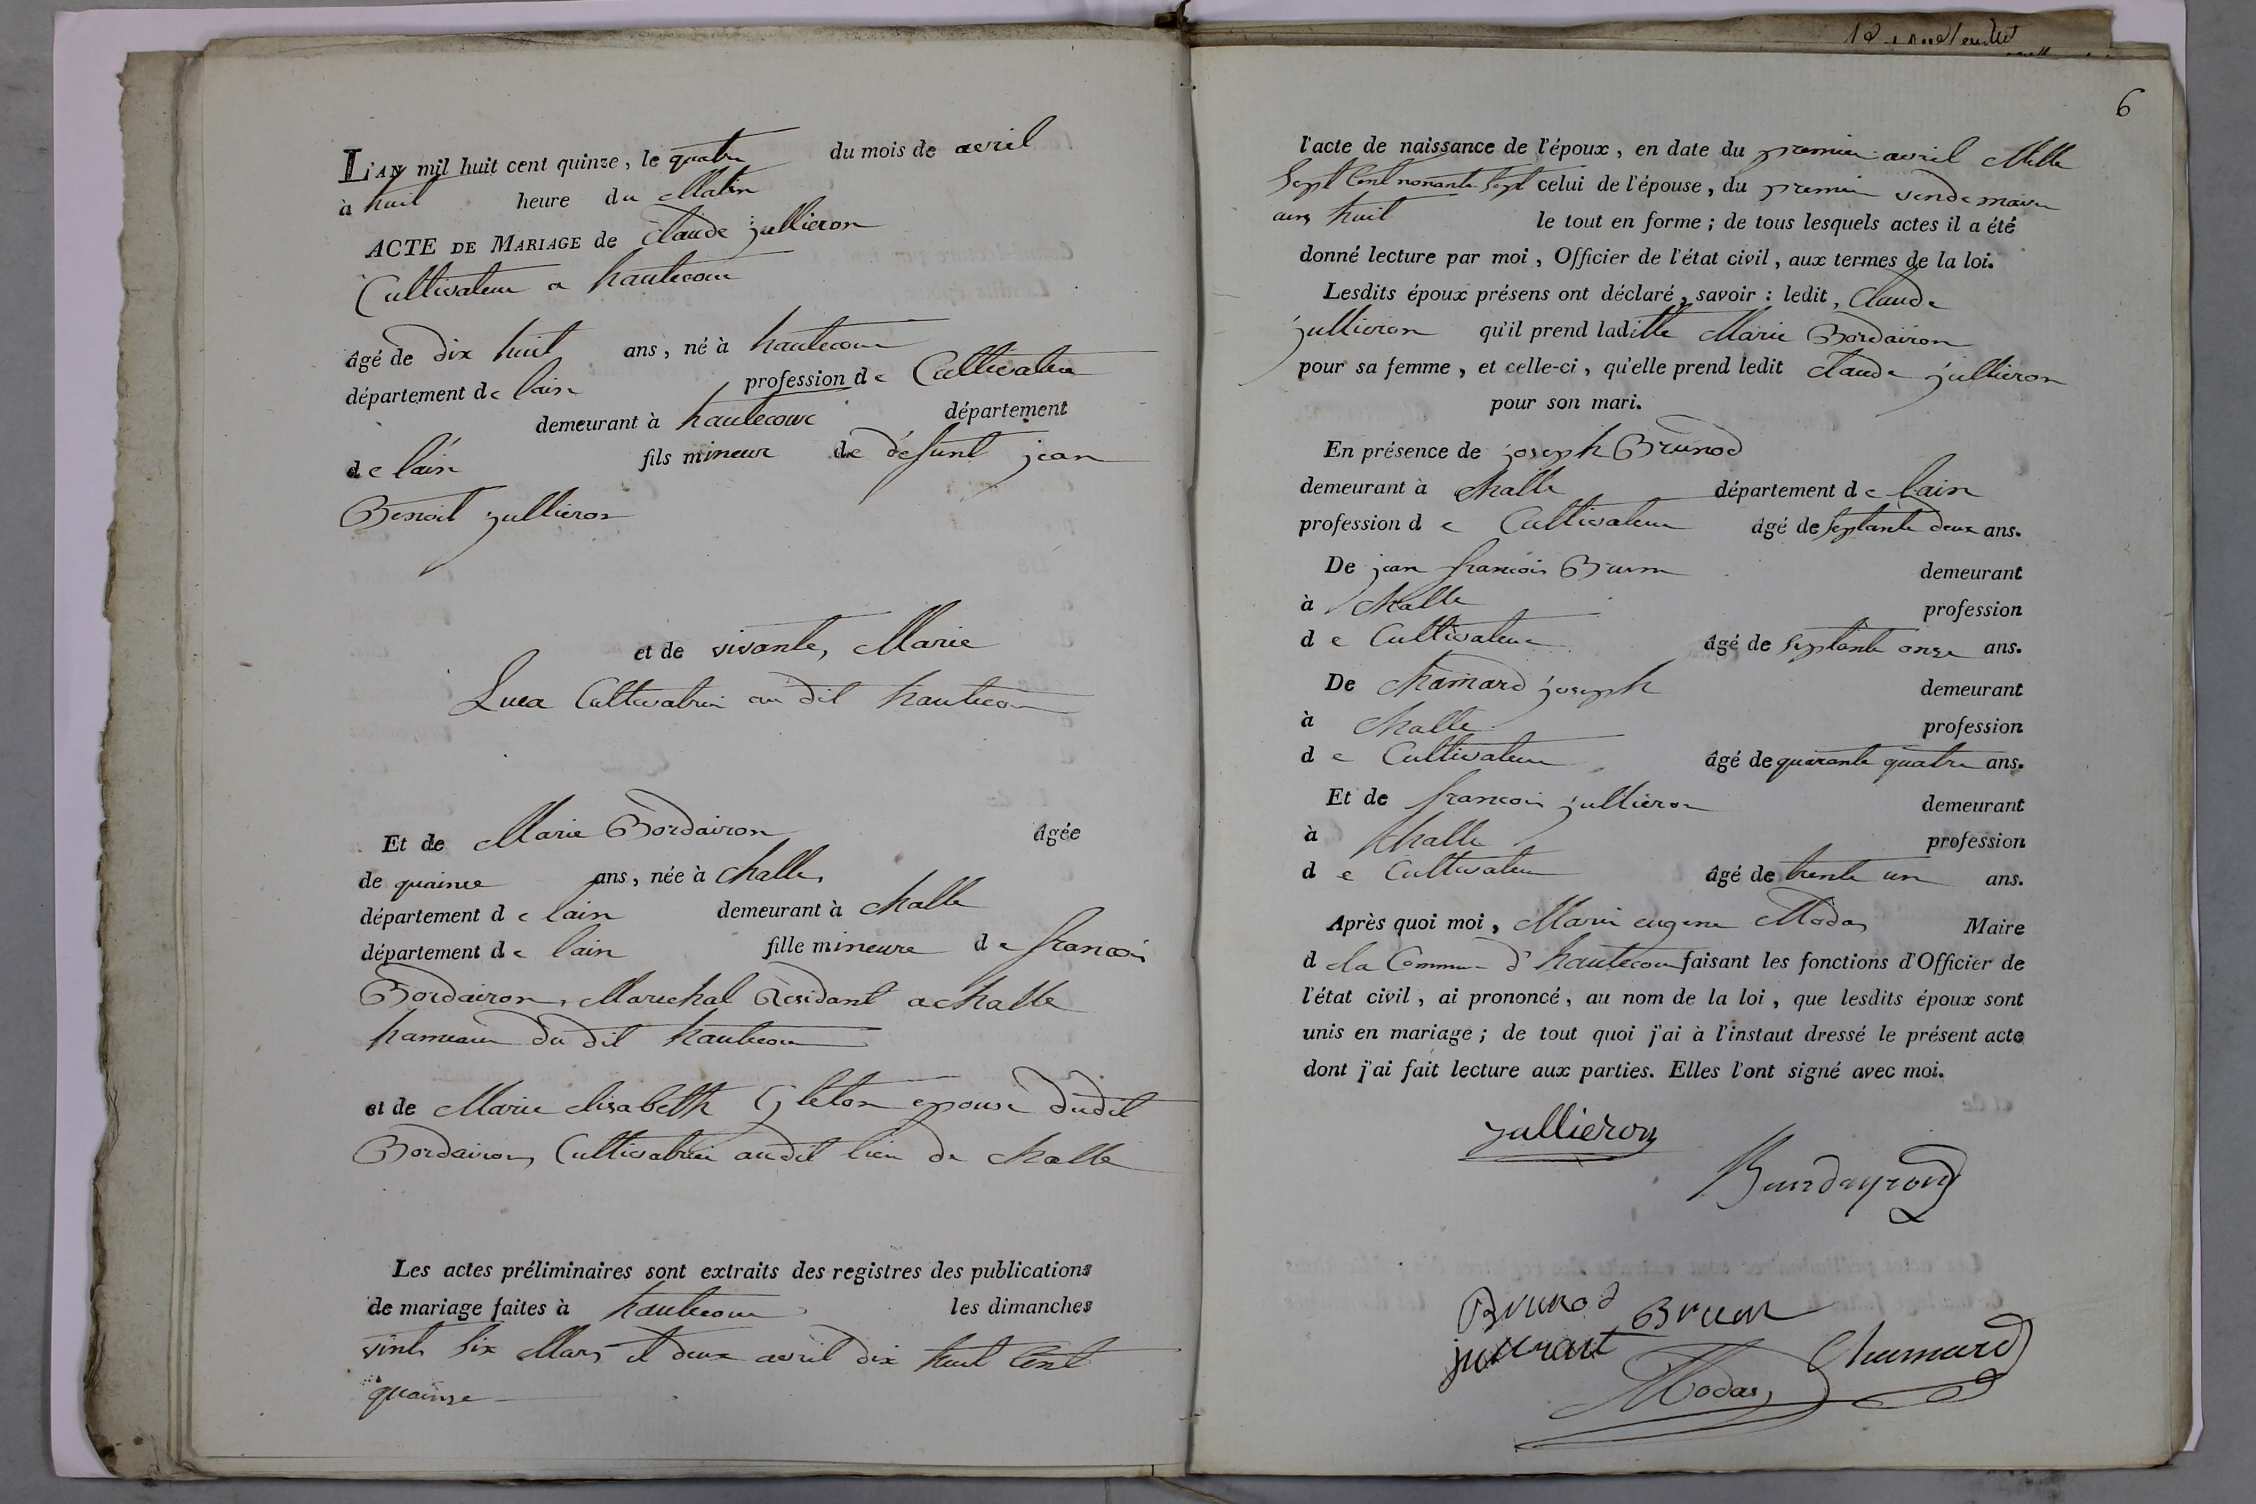 L'AN mil huit cent quinze, le quatre du mois de avril
à huit heure du Matin
ACTE DE MARIAGE de Claude jullieron
Cultivateur a hautecour
âgé de dix huit ans, né à hautecour
département de lain profession de Cultivateur
demeurant à hautecour département
de lain fils mineur de défunt jean
Benoit jullieron
et de vivante, Marie
Luca Cultivatrice au dit hautecour
Et de Marie Bordairon âgée
de quainze ans, née à challe,
département de lain demeurant à challe
département de lain fille mineure de francois
Bordairon, Marechal Residant a challe
hameau du dit hautecour
et de Marie elisabeth Gleton epouse dudit
Bordairon, Cultivatrice audit lieu de challe
Les actes préliminaires sont extraits des registres des publications
de mariage faites à hautecour les dimanches
vint six Mars et deux avril dix huit Cent
quainze
6
l'acte de naissance de l'époux, en date du premier avril Mille
Sept Cent nonante Sept celui de l'épouse, du premier vendemaire
ans huit le tout en forme; de tous lesquels actes il a été
donné lecture par moi, Officier de l'état civil, aux termes de la loi.
Lesdits époux présens ont déclaré, savoir: ledit, Claude
jullieron qu'il prend laditte Marie Bordairon
pour sa femme, et celle-ci, qu'elle prend ledit Claude jullieron
pour son mari.
En présence de joseph Brunod
demeurant à challe département de lain
profession de Cultivateur âgé de septante deux ans.
De jean francois Brun demeurant
à challe profession
de Cultivateur âgé de septante onze ans.
De chamard joseph demeurant
à challe profession
de Cultivateur âgé de quarante quatre ans.
Et de francois jullieron demeurant
à challe profession
de Cultivateur âgé de trente un ans.
Après quoi moi, Marie eugene Modas Maire
de la Commune d'hautecour faisant les fonctions d'Officier de
l'état civil, ai prononcé, au nom de la loi, que lesdits époux sont
unis en mariage; de tout quoi j'ai à l'instaut dressé le présent acte
dont j'ai fait lecture aux parties. Elles l'ont signé avec moi.
jullieron
Bourdayron
Brunod Brun
Chamard
Modas